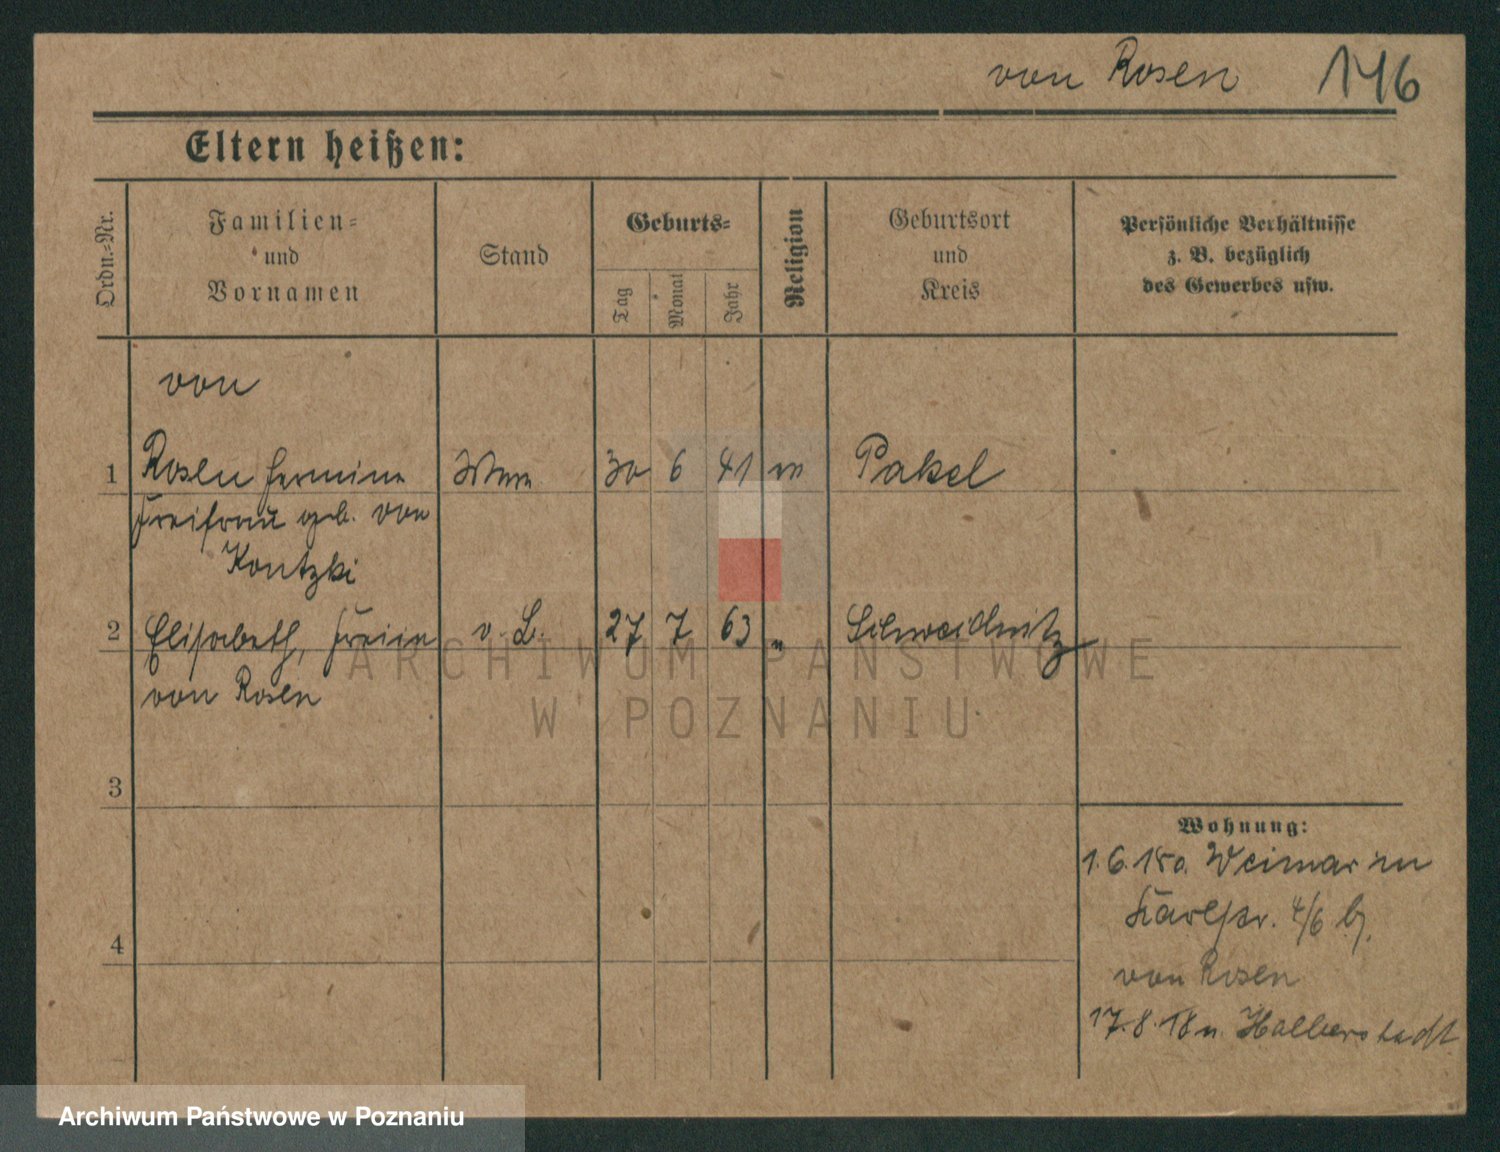 von Rosen 146
Eltern heißen:
Ordn.=Nr.
Familien=
und
Vornamen
Stand
Geburts=
Tag
Monat
Jahr
Religion
Geburtsort
und
Kreis
Persönliche Verhältnisse
z. B. bezüglich
des Gewerbes usw.
von
1 Rosen Hermine 30 6 41 Pakel
Freifrau geb. von
Kontzki
2 Elisabeth, Freiin v. L. 27 7 63 " Schweidnitz
von Rosen
3
4
Wohnung:
1.6.18 a. Weimar in
Karlstr. 4/6 b.
von Rosen
17.8.18 n. Halberstadt
ARCHIWUM PAŃSTWOWE
W POZNANIU
Archiwum Państwowe w Poznaniu